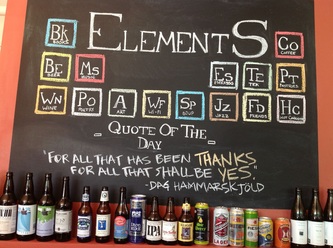 ELEMENTS
Bk
BOOKS
Co
COFFEE
Be
BEER
Ms
MUSIC
Es
ESPRESSO
Te
TEA
Pt
PASTRIES
Wn
WINE
Po
POETRY
A
ART
Wf
WI-FI
Sp
SOUP
Jz
JAZZ
Fd
FRIENDS
Hc
HOT CHOCOLATE
- QUOTE OF THE -
DAY
"FOR ALL THAT HAS BEEN THANKS
FOR ALL THAT SHALL BE YES."
-DAG HAMMARSKJÖLD
IPA